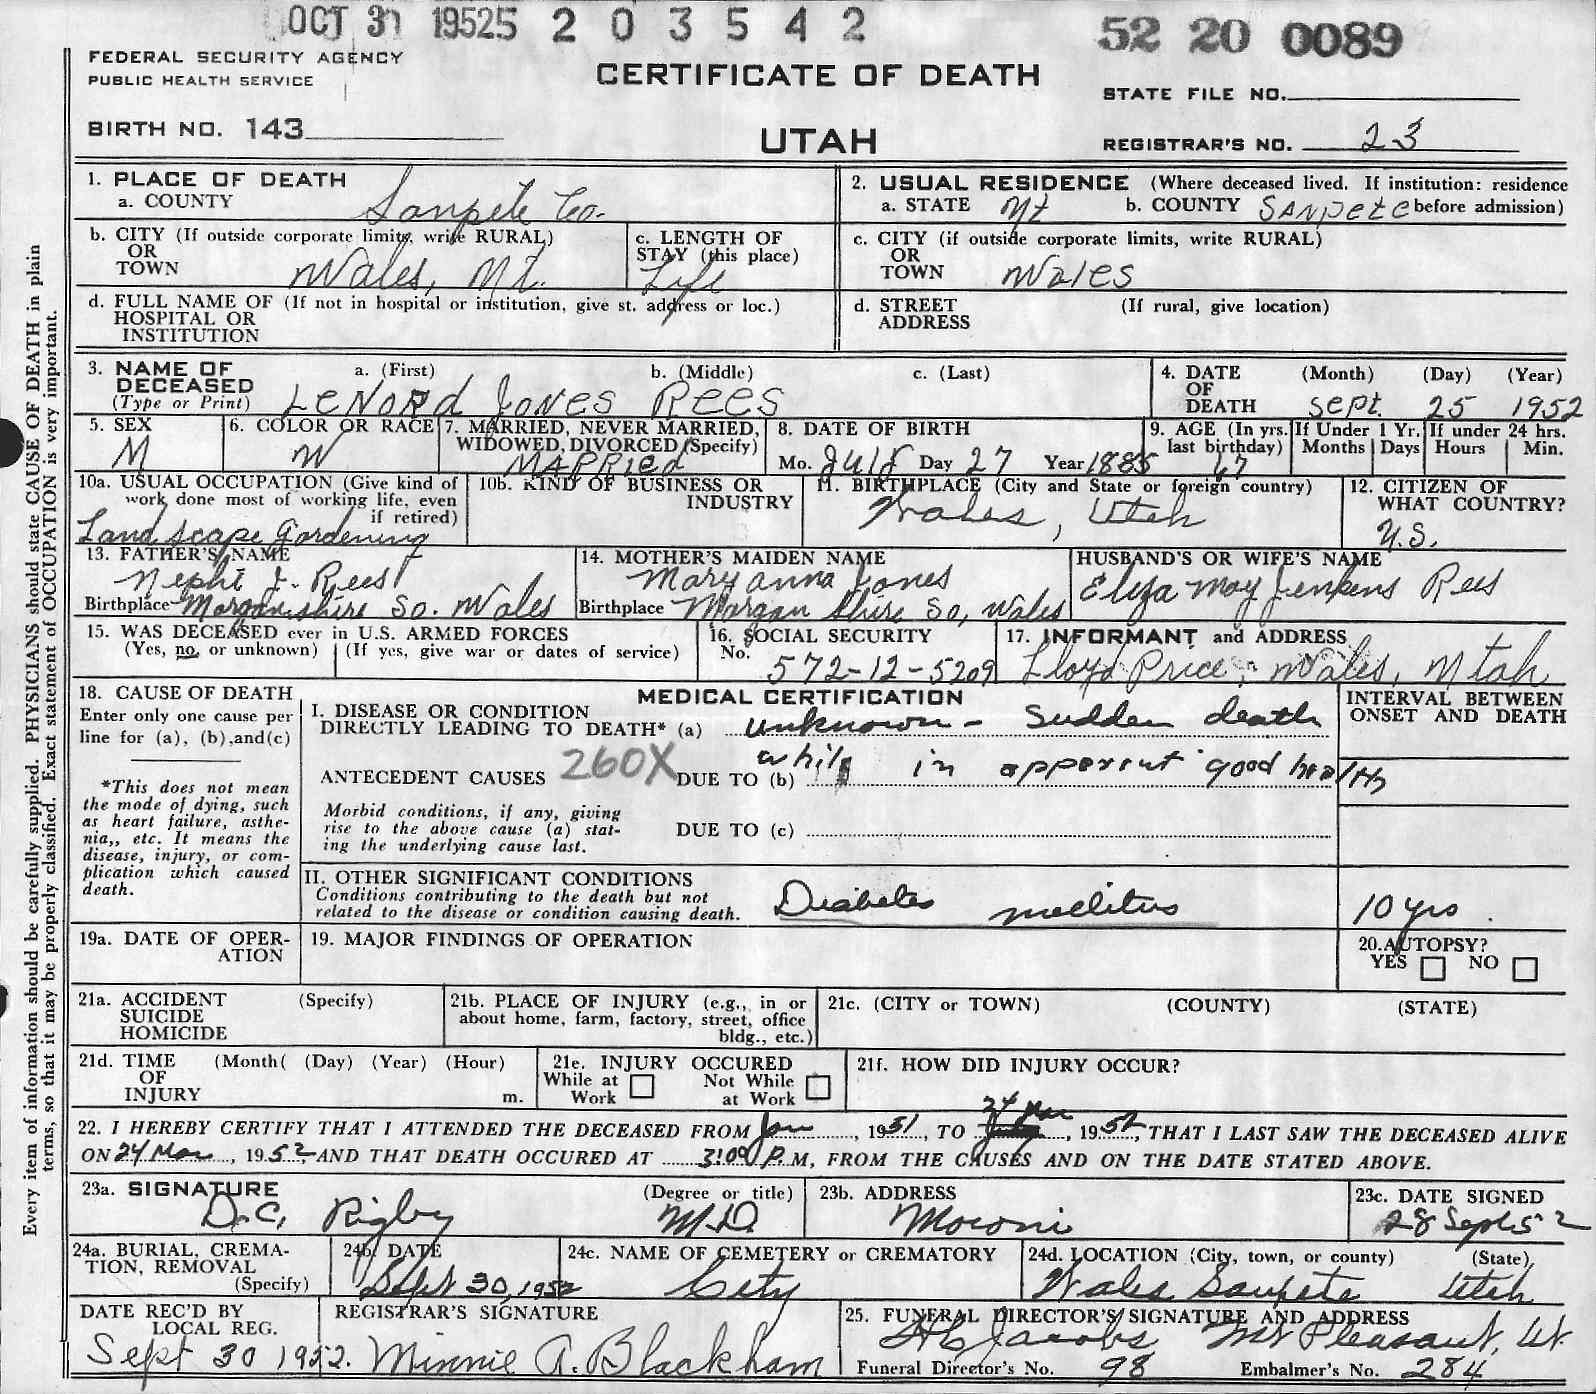 OCT 31 1952 5 2 0 3 5 4 2 52 20 0089
FEDERAL SECURITY AGENCY
PUBLIC HEALTH SERVICE
CERTIFICATE OF DEATH
STATE FILE NO.
BIRTH NO. 143
UTAH
REGISTRAR'S NO. 23
1. PLACE OF DEATH
a. COUNTY Sanpete Co.
2. USUAL RESIDENCE (Where deceased lived. If institution: residence
a. STATE Ut b. COUNTY SANPETE before admission)
b. CITY (If outside corporate limits, write RURAL)
OR
TOWN Wales, Ut.
c. LENGTH OF
STAY (this place)
Life
c. CITY (if outside corporate limits, write RURAL)
OR
TOWN Wales
d. FULL NAME OF (If not in hospital or institution, give st. address or loc.)
HOSPITAL OR
INSTITUTION
d. STREET (If rural, give location)
ADDRESS
3. NAME OF a. (First) b. (Middle) c. (Last)
DECEASED
(Type or Print) LeNord Jones Rees
4. DATE (Month) (Day) (Year)
OF
DEATH Sept. 25 1952
5. SEX
M
6. COLOR OR RACE
W
7. MARRIED, NEVER MARRIED,
WIDOWED, DIVORCED (Specify)
MARRied
8. DATE OF BIRTH
Mo. July Day 27 Year 1885
9. AGE (In yrs.
last birthday)
67
If Under 1 Yr.
Months Days
If under 24 hrs.
Hours Min.
10a. USUAL OCCUPATION (Give kind of
work done most of working life, even
if retired)
Landscape Gardening
10b. KIND OF BUSINESS OR
INDUSTRY
11. BIRTHPLACE (City and State or foreign country)
Wales, Utah
12. CITIZEN OF
WHAT COUNTRY?
U.S.
13. FATHER'S NAME
Nephi J. Rees
Birthplace Morganshire So. Wales
14. MOTHER'S MAIDEN NAME
Mary anna Jones
Birthplace Morgan Shire So, Wales
HUSBAND'S OR WIFE'S NAME
Eliza May Jenkens Rees
15. WAS DECEASED ever in U.S. ARMED FORCES
(Yes, no, or unknown) (If yes, give war or dates of service)
16. SOCIAL SECURITY
No.
572-12-5209
17. INFORMANT and ADDRESS
Lloyd Price, Wales, Utah
18. CAUSE OF DEATH
Enter only one cause per
line for (a), (b),and(c)
*This does not mean
the mode of dying, such
as heart failure, asthe-
nia,, etc. It means the
disease, injury, or com-
plication which caused
death.
MEDICAL CERTIFICATION
I. DISEASE OR CONDITION
DIRECTLY LEADING TO DEATH* (a) unknown - sudden death
ANTECEDENT CAUSES 260X DUE TO (b) while in apparent good health
Morbid conditions, if any, giving
rise to the above cause (a) stat-
ing the underlying cause last.
DUE TO (c)
INTERVAL BETWEEN
ONSET AND DEATH
II. OTHER SIGNIFICANT CONDITIONS
Conditions contributing to the death but not
related to the disease or condition causing death.
Diabetes mellitus 10 yrs.
19a. DATE OF OPER-
ATION
19. MAJOR FINDINGS OF OPERATION
20. AUTOPSY?
YES NO
21a. ACCIDENT (Specify)
SUICIDE
HOMICIDE
21b. PLACE OF INJURY (e.g., in or
about home, farm, factory, street, office
bldg., etc.)
21c. (CITY or TOWN) (COUNTY) (STATE)
21d. TIME (Month( (Day) (Year) (Hour)
OF
INJURY m.
21e. INJURY OCCURED
While at Work Not While at Work
21f. HOW DID INJURY OCCUR?
24 Mar
22. I HEREBY CERTIFY THAT I ATTENDED THE DECEASED FROM Jan, 1951, TO , 1952, THAT I LAST SAW THE DECEASED ALIVE
ON 24 Mar, 1952, AND THAT DEATH OCCURED AT 3:00 P.M, FROM THE CAUSES AND ON THE DATE STATED ABOVE.
23a. SIGNATURE (Degree or title)
D.C. Rigby M.D.
23b. ADDRESS
Moroni
23c. DATE SIGNED
28 Sept 52
24a. BURIAL, CREMA-
TION, REMOVAL
(Specify)
24b. DATE
Sept 30, 1952
24c. NAME OF CEMETERY or CREMATORY
City
24d. LOCATION (City, town, or county) (State)
Wales Sanpete Utah
DATE REC'D BY
LOCAL REG.
Sept 30 1952.
REGISTRAR'S SIGNATURE
Minnie A. Blackham
25. FUNERAL DIRECTOR'S SIGNATURE AND ADDRESS
Jacobs Mt Pleasant, Ut.
Funeral Director's No. 98 Embalmer's No. 284
Every item of information should be carefully supplied. PHYSICIANS should state CAUSE OF DEATH in plain
terms, so that it may be properly classified. Exact statement of OCCUPATION is very important.